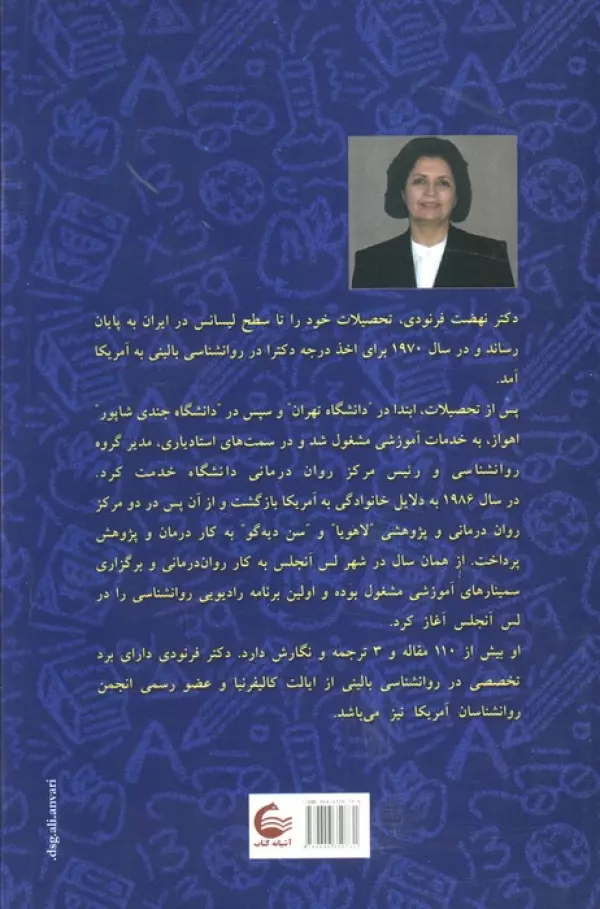 دکتر نهضت فرنودی، تحصیلات خود را تا سطح لیسانس در ایران به پایان
رساند و در سال ۱۹۷۰ برای اخذ درجه دکترا در روانشناسی بالینی به آمریکا
آمد.
پس از تحصیلات، ابتدا در "دانشگاه تهران" و سپس در "دانشگاه جندی شاپور"
اهواز، به خدمات آموزشی مشغول شد و در سمت‌های استادیاری، مدیر گروه
روانشناسی و رئیس مرکز روان درمانی دانشگاه خدمت کرد.
در سال ۱۹۸۶ به دلایل خانوادگی به آمریکا بازگشت و از آن پس در دو مرکز
روان درمانی و پژوهشی "لاهویا" و "سن دیه‌گو" به کار درمان و پژوهش
پرداخت. از همان سال در شهر لس آنجلس به کار روان‌درمانی و برگزاری
سمینارهای آموزشی مشغول بوده و اولین برنامه رادیویی روانشناسی را در
لس آنجلس آغاز کرد.
او بیش از ۱۱۰ مقاله و ۳ ترجمه و نگارش دارد. دکتر فرنودی دارای برد
تخصصی در روانشناسی بالینی از ایالت کالیفرنیا و عضو رسمی انجمن
روانشناسان آمریکا نیز می‌باشد.
.dsg.ali.anvari
آشیانه کتاب